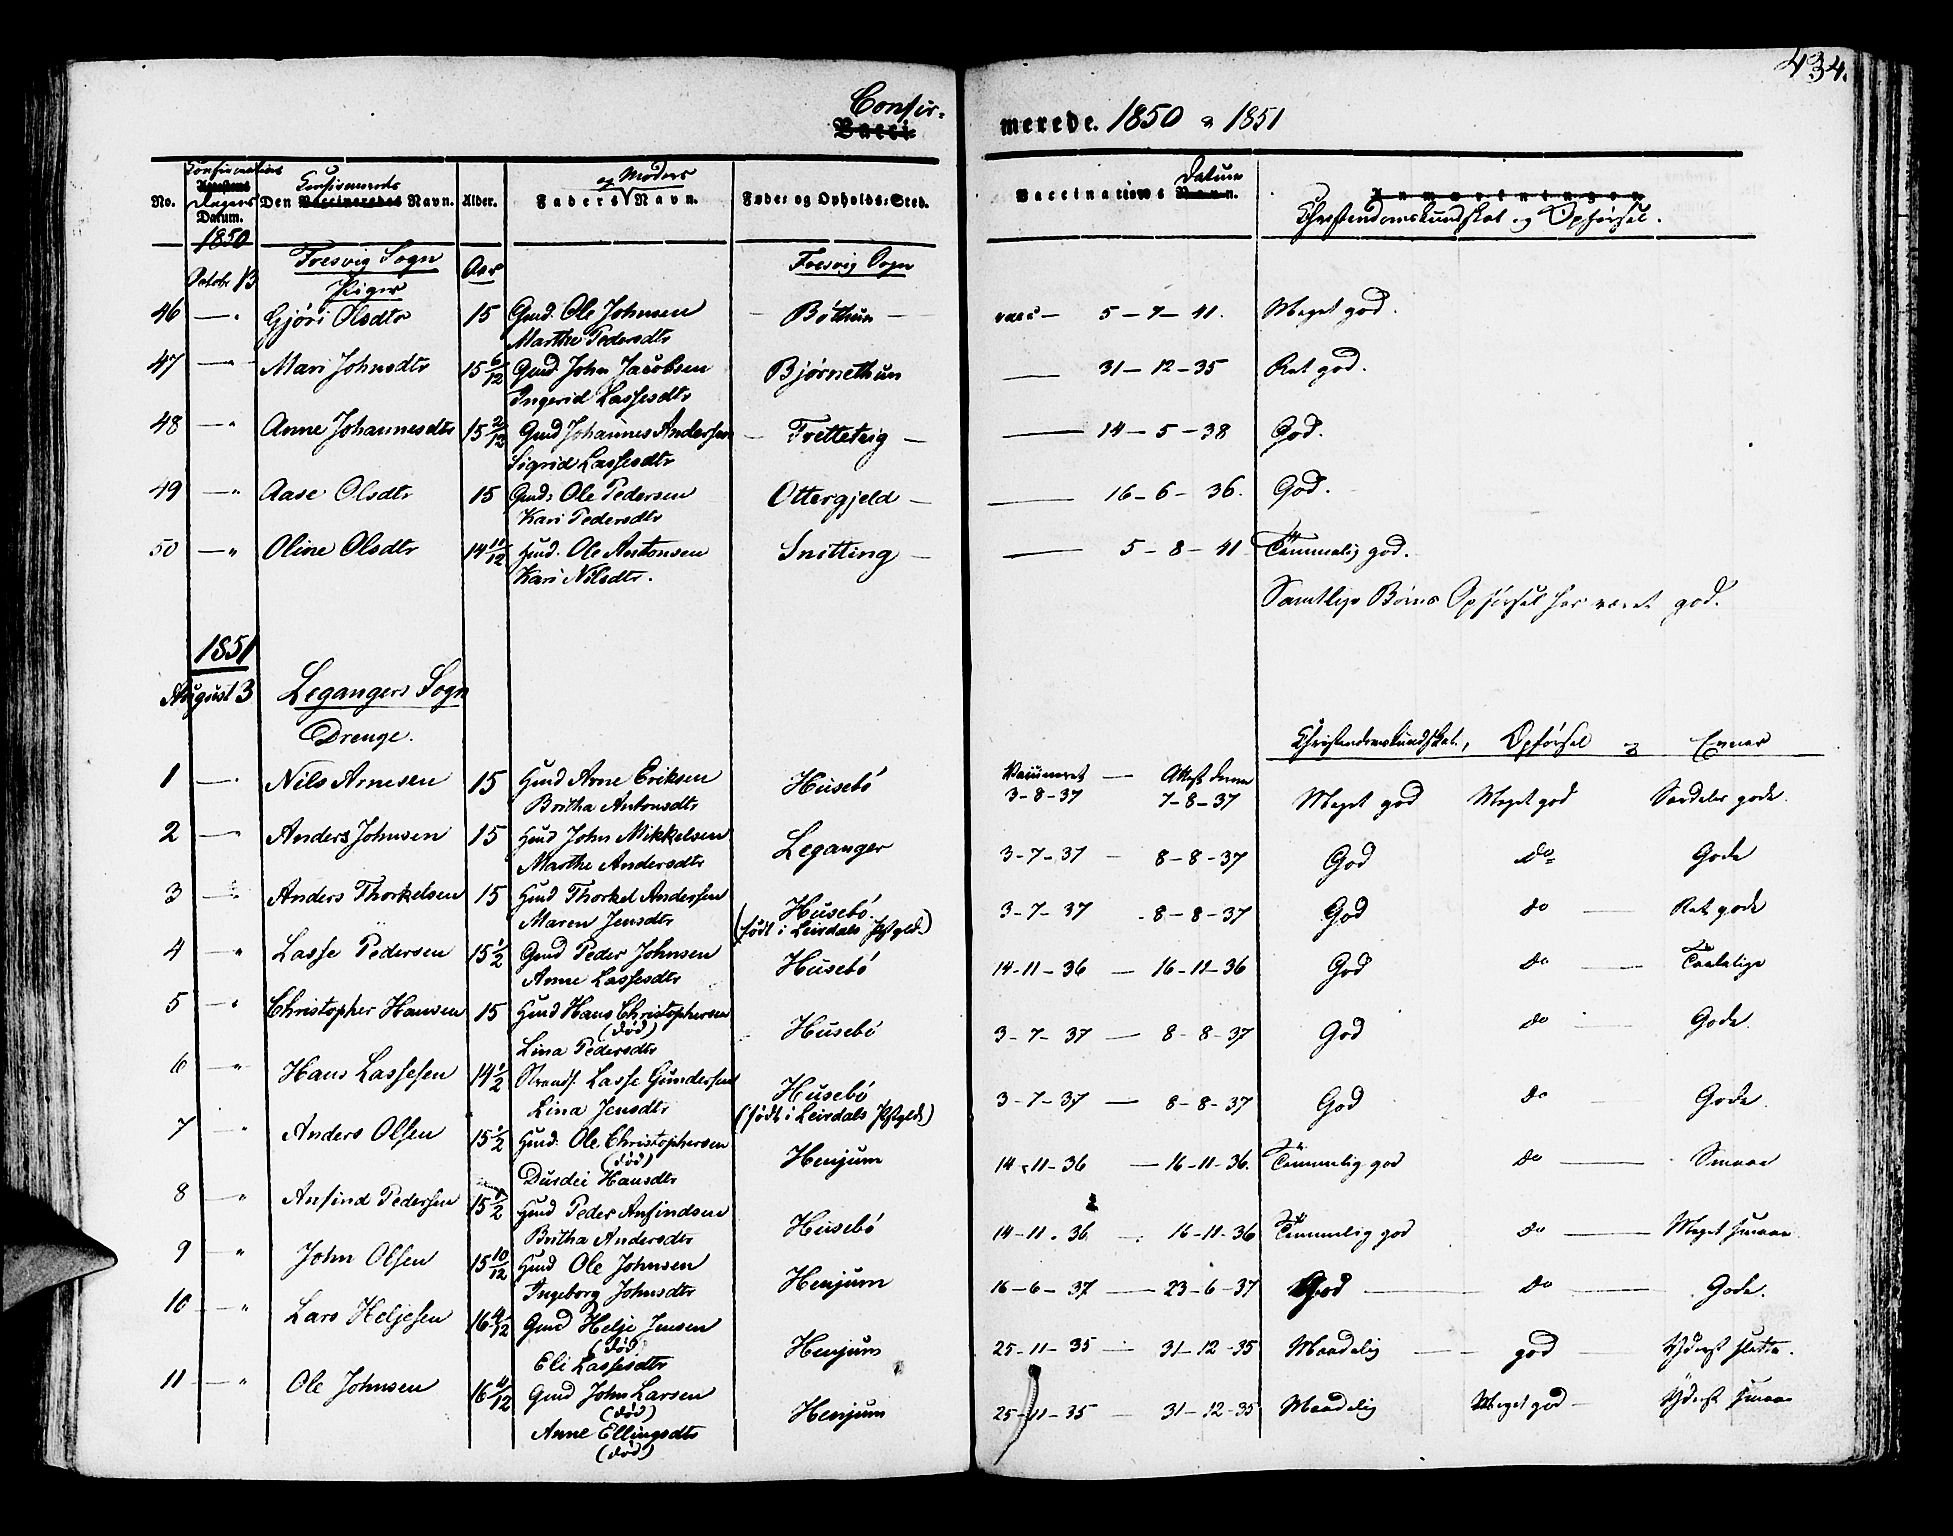 434.
Confir- merede. 1850 & 1851
Vacci-
No. Confirmations Dagens Datum. Den Confirmerede Navn. Alder. Faders og Moders Navn. Føde- og Opholds-Sted. Vaccinations Datum Christendomskundskab og Opførsel.
1850
Octobr 13 Fresvig Sogn Aar Fresvig Sogn
Piger
46 — " Gjöri Olsdtr 15 Gmd. Ole Johnsen — Böthun — vacc — 5-7-41. Meget god.
Marthe Pedersdtr
47 — " Mari Johnsdtr 15 6/12 Gmd. John Jacobsen Bjørnethun — 31-12-35 Ret god.
Ingerid Lassesdtr
48 — " Anne Johannesdtr 15 2/12 Gmd Johannes Andersen — Tretteteig — — 14-5-38 God.
Sigrid Lassesdtr
49 — " Aase Olsdtr 15 Gmd. Ole Pedersen Ottergjeld — — 16-6-36. God.
Kari Pedersdtr
50 — " Oline Olsdtr 14 11/12 Hmd. Ole Antonsen Snitting — — 5-8-41 Temmelig god.
Kari Nilsdtr.
Samtlige Börns Opförsel har været god.
1851
August 3 Leganger Sogn
Drenge.
Christendomskundskab, Opførsel & Evner
1 — " Nils Arnesen 15 Hmd Arne Eriksen Husebö Vaccineret — Attest derom
Britha Antonsdtr 3-8-37 7-8-37 Meget god Meget god Særdeles gode.
2 — " Anders Johnsen 15 Hmd John Mikkelsen Leganger 3-7-37 — 8-8-37 God do Gode
Marthe Andersdtr
3 — " Anders Thorkelsen 15 Hmd Thorkel Andersen Husebö. 3-7-37 - 8-8-37 God do — Ret gode
Maren Jensdtr (födt i Leirdals Pstgld.)
4 — " Lasse Pedersen 15 1/2 Gmd Peder Johnsen Husebö 14-11-36 — 16-11-36 God do — Taalelige
Anne Lassesdtr
5 — " Christopher Hansen 15 Hmd Hans Christophersen Husebö 3-7-37 — 8-8-37 God do — Gode.
(död)
Lina Pedersdtr
6 — " Hans Lassesen 14 1/2 Strands. Lasse Gundersen Husebö 3-7-37 — 8-8-37 God do — Gode.
Lina Jensdtr (födt i Leirdals Pstgld.)
7 — " Anders Olsen 15 1/2 Hmd. Ole Christophersen Henjum 14-11-36 — 16-11-36. Temmelig god do — Smaae
(död)
Durdei Hansdtr
8 — " Anfind Pedersen 15 1/2 Hmd Peder Anfindsen Husebö 14-11-36 16-11-36 Temmelig god do — Meget smaae.
Britha Andersdtr
9 " John Olsen 15 10/12 Hmd Ole Johnsen Henjum 16-6-37 — 23-6-37 God — do — Gode.
Ingeborg Johnsdtr
10 — " Lars Heljesen 16 4/12 Gmd Helje Jensen Henjum 25-11-35 — 31-12-35 Maadelig — god — Yderst slette.
(död)
Eli Lassesdtr
11 — " Ole Johnsen 16 4/12 Gmd John Larsen Henjum 25-11-35 — 31-12-35 Maadelig Meget god — Yderst smaae
(död)
Anne Ellingsdtr
(död)